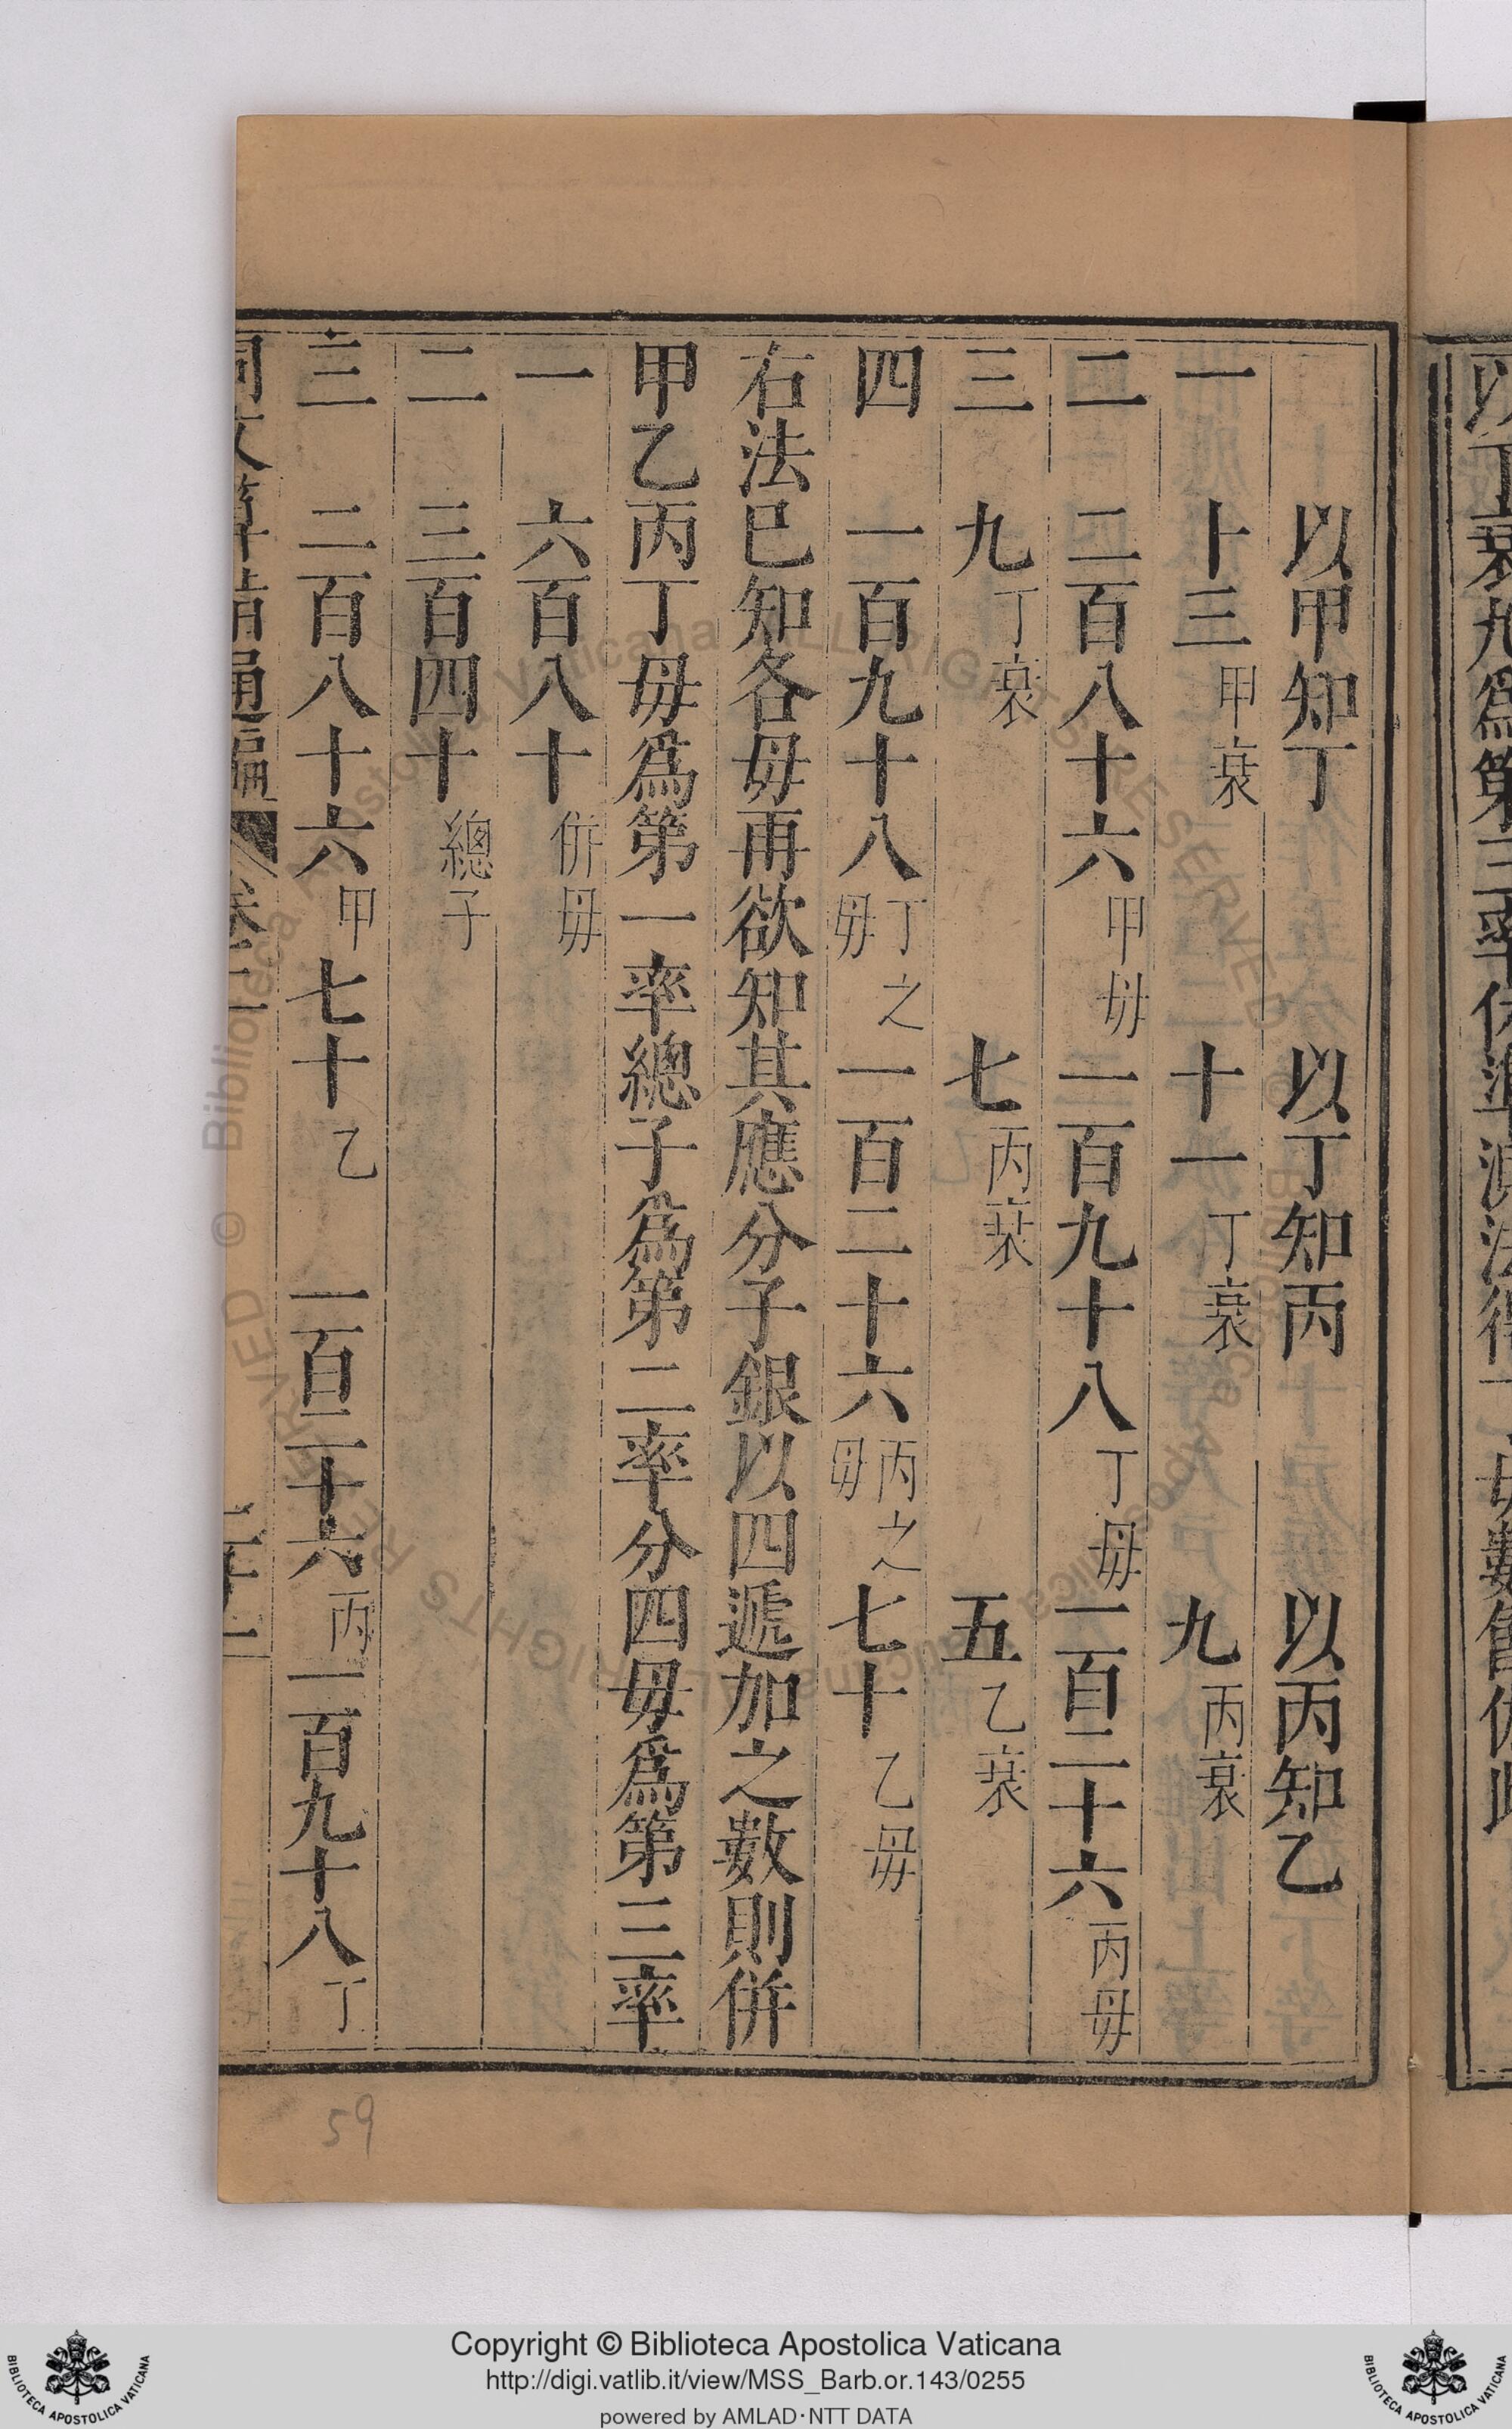 以甲知丁　以丁知丙　以丙知乙
一　十三甲衰　十一丁衰　九丙衰
二　二百八十六甲毋　一百九十八丁毋　一百二十六丙毋
三　九丁衰　七丙衰　五乙衰
四　一百九十八丁之毋　一百二十六丙之毋　七十乙毋
右法已知各毋再欲知其應分子銀以四遞加之數則併
甲乙丙丁毋爲第一率總子爲第二率分四毋爲第三率
一　六百八十併毋
二　三百四十總子
三　二百八十六甲　七十乙　一百二十六丙　一百九十八丁
59
Copyright © Biblioteca Apostolica Vaticana
http://digi.vatlib.it/view/MSS_Barb.or.143/0255
powered by AMLAD·NTT DATA